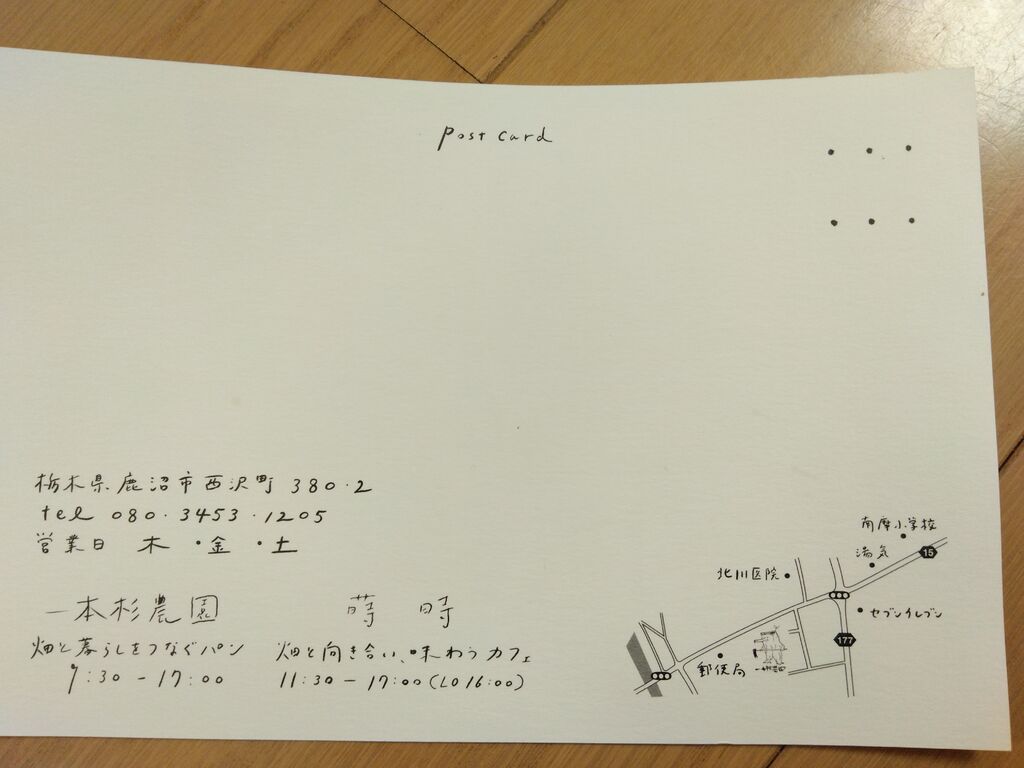 post card
栃木県鹿沼市西沢町 380・2
tel 080・3453・1205
営業日 木・金・土
一本杉農園
畑と暮らしをつなぐパン
9:30 - 17:00
蒔時
畑と向き合い、味わうカフェ
11:30 - 17:00 (LO 16:00)
南摩小学校
湯気
15
北川医院
セブンイレブン
177
郵便局
一本杉農園